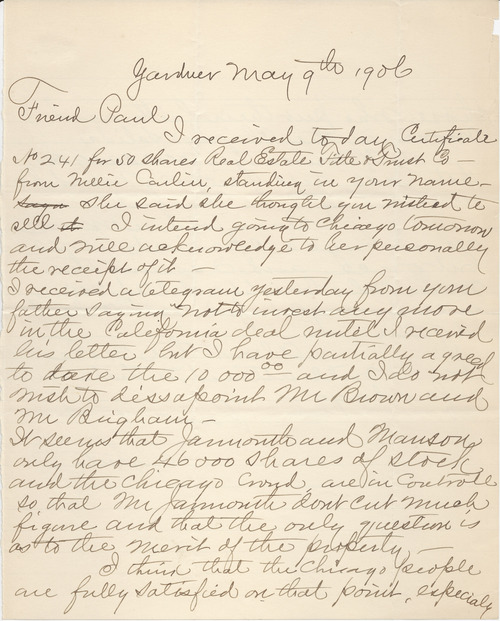 Gardner May 9th 1906
Friend Paul
I received to day Certificate
No 241 for 50 shares Real Estate Title & Trust Co —
from Nellie Carlin, standing in your name —
she said she thought you wished to
sell it I intend going to Chicago tomorrow
and will acknowledge to her personally
the receipt of it —
I received a telegram yesterday from your
father saying not to invest any more
in the California deal until I received
his letter but I have partially agreed
to take the 10 000 00 and I do not
wish to dessapoint Mr Brown and
Mr Bingham —
It seems that Jarmouth and Manson
only have 46000 shares of stock
and the Chicago crowd are in controle
so that Mr Jarmouth dont cut much
figure and that the only question is
as to the merit of the property —
I think that the Chicago people
are fully satisfied on that point, especialy